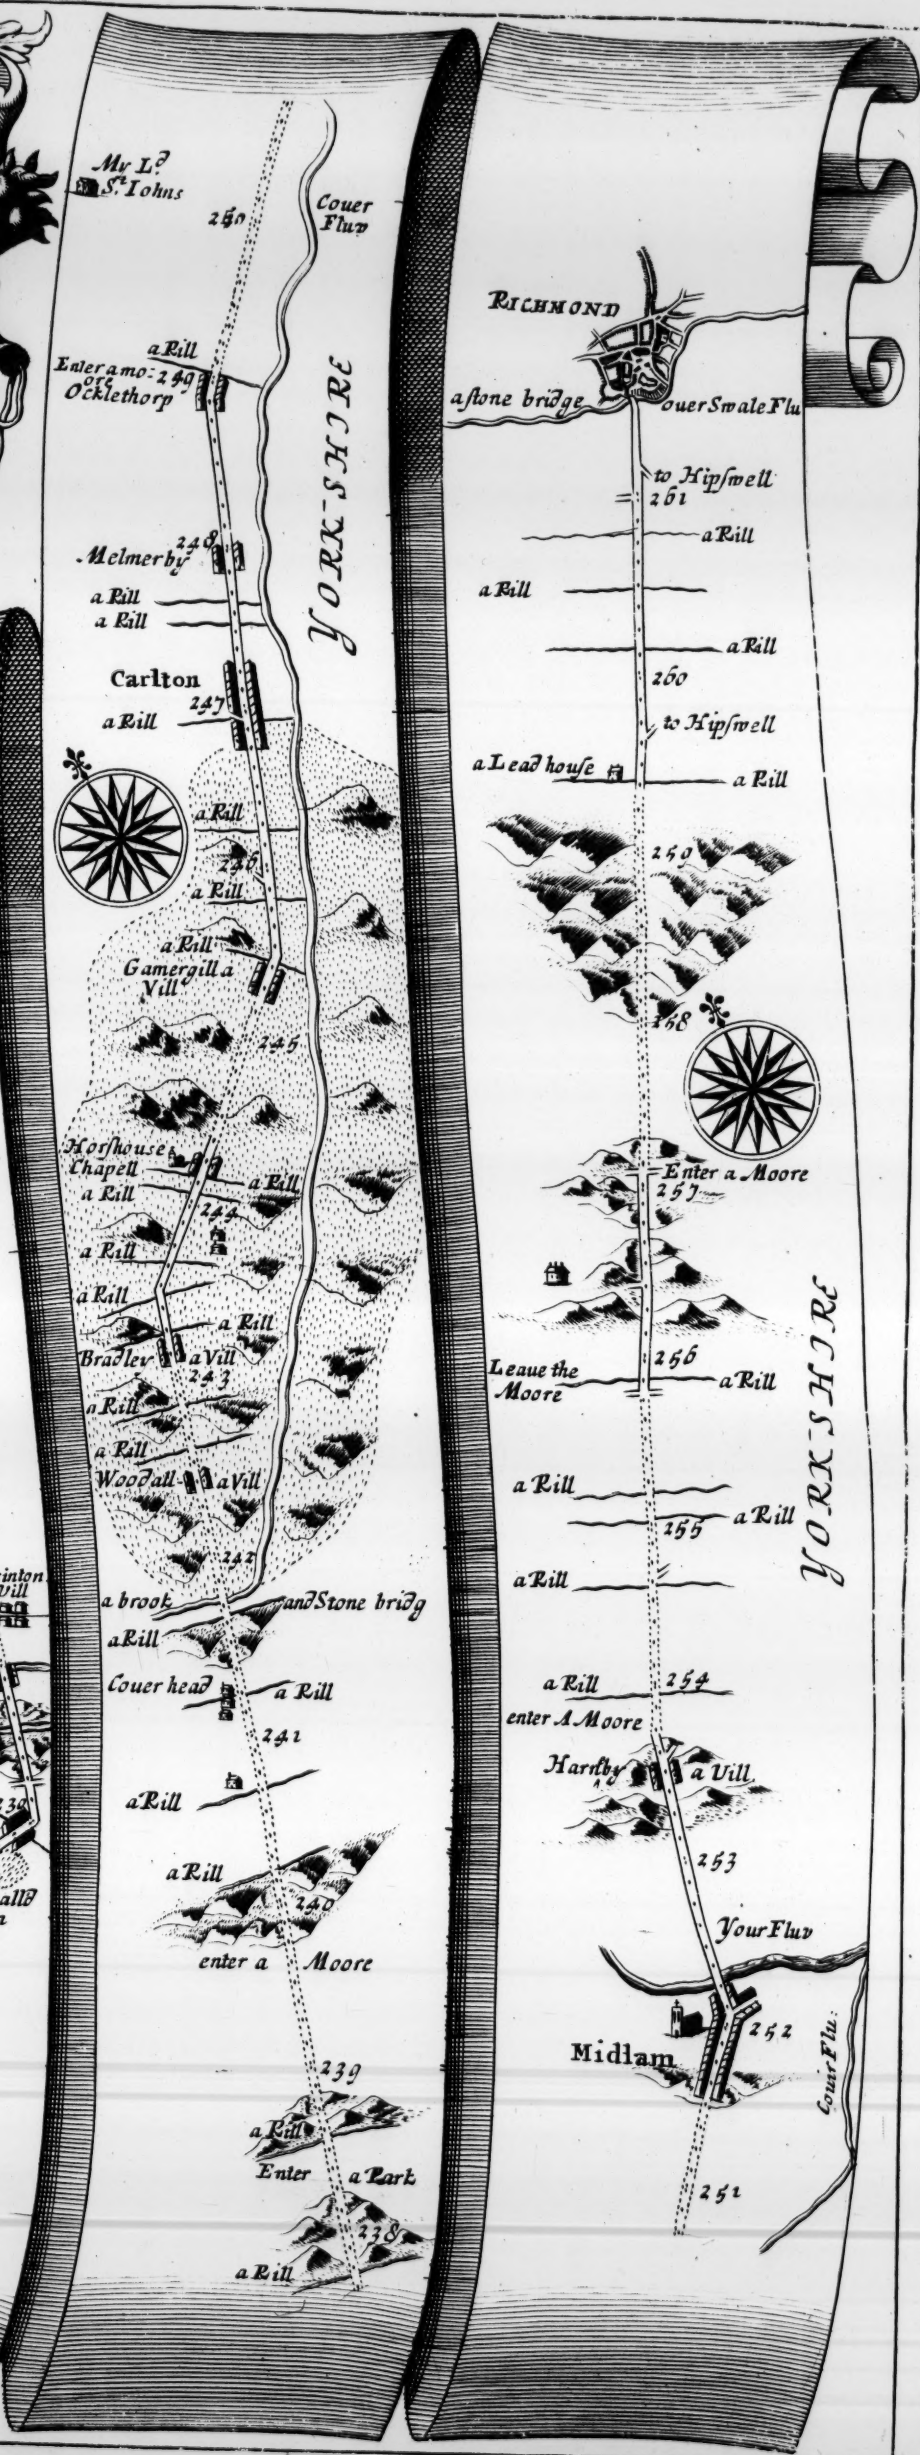 My L.d
S.t Iohns
Couer
Fluv
250
a Rill
Enter a mo=
ore
249
Ocklethorp
YORK-SHIRE
248
Melmerby
a Rill
a Rill
Carlton
247
a Rill
a Rill
246
a Rill
a Rill
Gamergill a
Vill
245
Horshouse
Chapell
a Rill
a Rill
244
a Rill
a Rill
a Rill
Bradley
a Vill
243
a Rill
a Rill
Woodall
a Vill
242
a brook
and Stone bridg
a Rill
Couer head
a Rill
241
a Rill
a Rill
240
enter a Moore
239
a Rill
Enter a Park
238
a Rill
RICHMOND
a stone bridge
ouer Swale Flu
to Hipswell
261
a Rill
a Rill
a Rill
260
to Hipswell
a Lead house
a Rill
259
258
Enter a Moore
257
YORK-SHIRE
256
Leaue the
Moore
a Rill
a Rill
a Rill
255
a Rill
a Rill
254
enter A Moore
Harnby
a Vill
253
Your Fluv
252
Midlam
Couir Flu:
251
inton
Vill